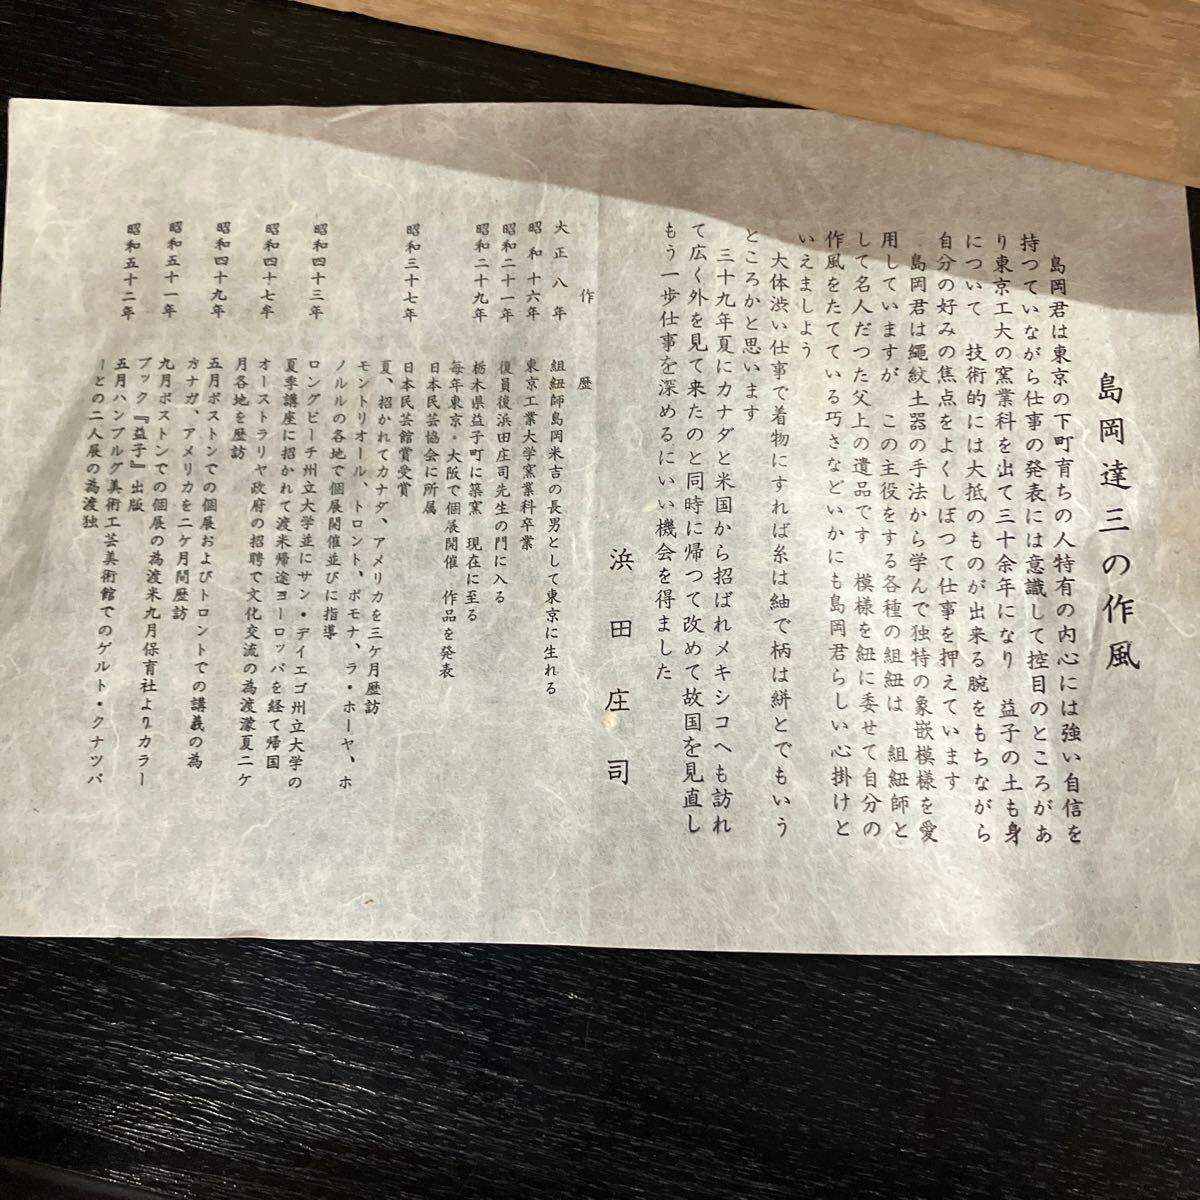 島岡達三の作風
島岡君は東京の下町育ちの人特有の内心には強い自信を
持つていながら仕事の発表には意識して控目のところがあ
り東京工大の窯業科を出て三十余年になり　益子の土も身
について　技術的には大抵のものが出来る腕をもちながら
自分の好みの焦点をよくしぼつて仕事を押えています
島岡君は縄紋土器の手法から学んで独特の象嵌模様を愛
用していますが　この主役をする各種の組紐は　組紐師と
して名人だつた父上の遺品です　模様を紐に委せて自分の
作風をたてている巧さなどいかにも島岡君らしい心掛けと
いえましよう
大体渋い仕事で着物にすれば糸は紬で柄は絣とでもいう
ところかと思います
三十九年夏にカナダと米国から招ばれメキシコへも訪れ
て広く外を見て来たのと同時に帰つて改めて故国を見直し
もう一歩仕事を深めるにいい機会を得ました
浜田庄司
作歴
大正八年　組紐師島岡米吉の長男として東京に生れる
昭和十六年　東京工業大学窯業科卒業
昭和二十一年　復員後浜田庄司先生の門に入る
昭和二十九年　栃木県益子町に築窯　現在に至る
毎年東京・大阪で個展開催　作品を発表
日本民芸協会に所属
昭和三十七年　日本民芸館賞受賞
夏、招かれてカナダ、アメリカを三ケ月歴訪
モントリオール、トロント、ポモナ、ラ・ホーヤ、ホ
ノルルの各地で個展開催並びに指導
昭和四十三年　ロングビーチ州立大学並にサン・デイエゴ州立大学の
夏季講座に招かれて渡米帰途ヨーロッパを経て帰国
昭和四十七年　オーストラリヤ政府の招聘で文化交流の為渡濠夏二ケ
月各地を歴訪
昭和四十九年　五月ボストンでの個展およびトロントでの講義の為
カナガ、アメリカを二ケ月間歴訪
昭和五十一年　九月ボストンでの個展の為渡米九月保育社よりカラー
ブック『益子』出版
昭和五十二年　五月ハンブルグ美術工芸美術館でのゲルト・クナツパ
ーとの二人展の為渡独